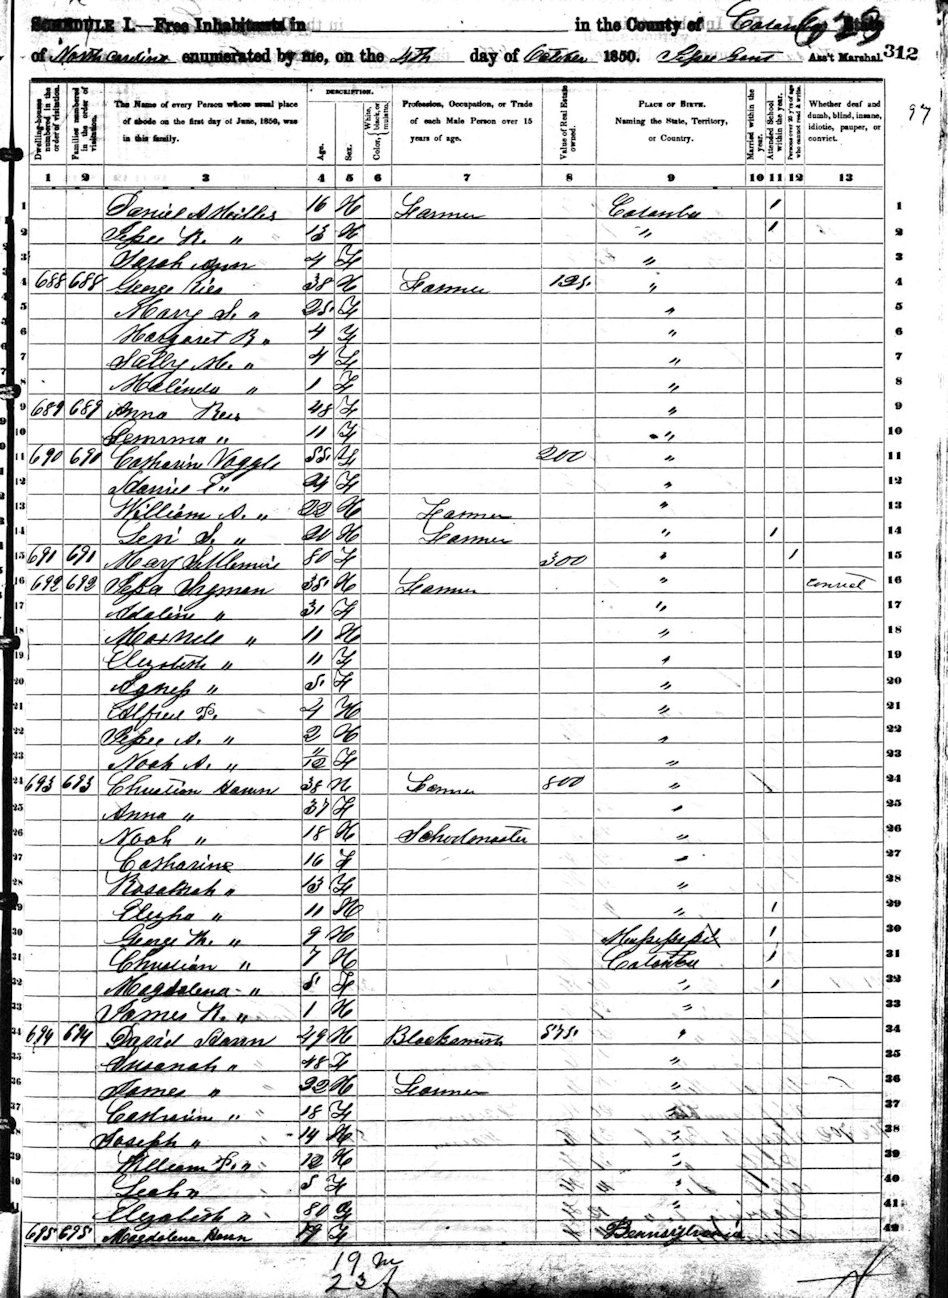 SCHEDULE I.—Free Inhabitants in in the County of Catawba State
623
of North Carolina enumerated by me, on the 4th day of October 1850. Ass't Marshal. 312
97
Dwelling-houses numbered in the order of visitation.
Families numbered in the order of visitation.
The Name of every Person whose usual place of abode on the first day of June, 1850, was in this family.
DESCRIPTION.
Age.
Sex.
Color, White, black, or mulatto.
Profession, Occupation, or Trade of each Male Person over 15 years of age.
Value of Real Estate owned.
PLACE OF BIRTH. Naming the State, Territory, or Country.
Married within the year.
Attended School within the year.
Persons over 20 y'rs of age who cannot read & write.
Whether deaf and dumb, blind, insane, idiotic, pauper, or convict.
1 2 3 4 5 6 7 8 9 10 11 12 13
1 Daniel A 16 M Farmer Catawba / 1
2 Jesse R. " 13 M " / 2
3 Sarah Ann 4 F " 3
4 688 688 George 38 M Farmer 125 " 4
5 Mary S. " 25 F " 5
6 Margaret B " 4 F " 6
7 Sally M. " 4 F " 7
8 Malinda " 1 F " 8
9 689 689 Anna 48 F " 9
10 " 11 F " 10
11 690 690 Catharin 55 F 200 " 11
12 " 24 F " 12
13 William A. " 22 M Farmer " 13
14 Levi S. " 20 M Farmer " / 14
15 691 691 Mary 80 F 300 " / 15
16 692 692 35 M Farmer " convict 16
17 Adaline " 31 F " 17
18 " 11 M " 18
19 Elizabeth " 11 F " 19
20 Agness " 5 F " 20
21 Alfred P. 4 M " 21
22 Jesse A. " 2 M " 22
23 Noah A. " 11/12 F " 23
24 693 693 Christian Hawn 38 M Farmer 800 " 24
25 Anna " 37 F " 25
26 Noah " 18 M Schoolmaster " 26
27 Catharine 16 F " 27
28 Rosannah " 13 F " 28
29 Elijha " 11 M " / 29
30 George M. " 9 M Mississippi / 30
31 Christian " 7 M Catawba / 31
32 Magdalena " 5 F " / 32
33 James R. " 1 M " 33
34 694 694 David Hawn 49 M Blacksmith 575 " 34
35 Susanah " 48 F " 35
36 James " 22 M Farmer " 36
37 Catharine " 18 F " 37
38 Joseph " 14 M " 38
39 William P. " 12 M " 39
40 Leah " 5 F " 40
41 Elizabeth " 80 " 41
42 695 695 Magdalena Hawn 79 F Pennsylvania 42
19 m
23 f